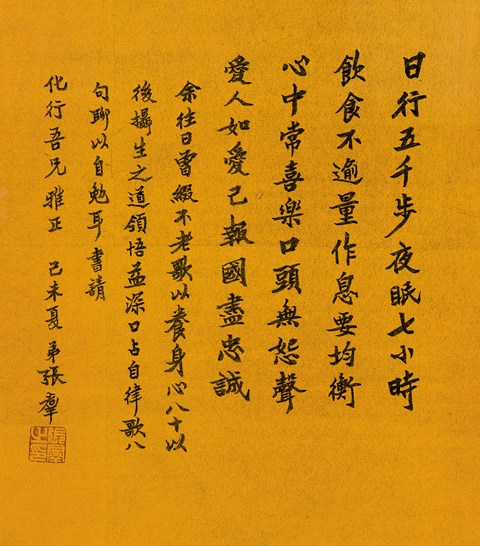 日行五千步夜眠七小時
飲食不逾量作息要均衡
心中常喜樂口頭無怨聲
愛人如愛己報國盡忠誠
余往日曾綴不老歌以養身心八十以
後攝生之道領悟益深口占自律歌八
句聊以自勉耳書請
化行吾兄雅正 己未夏 弟張羣
張羣之印